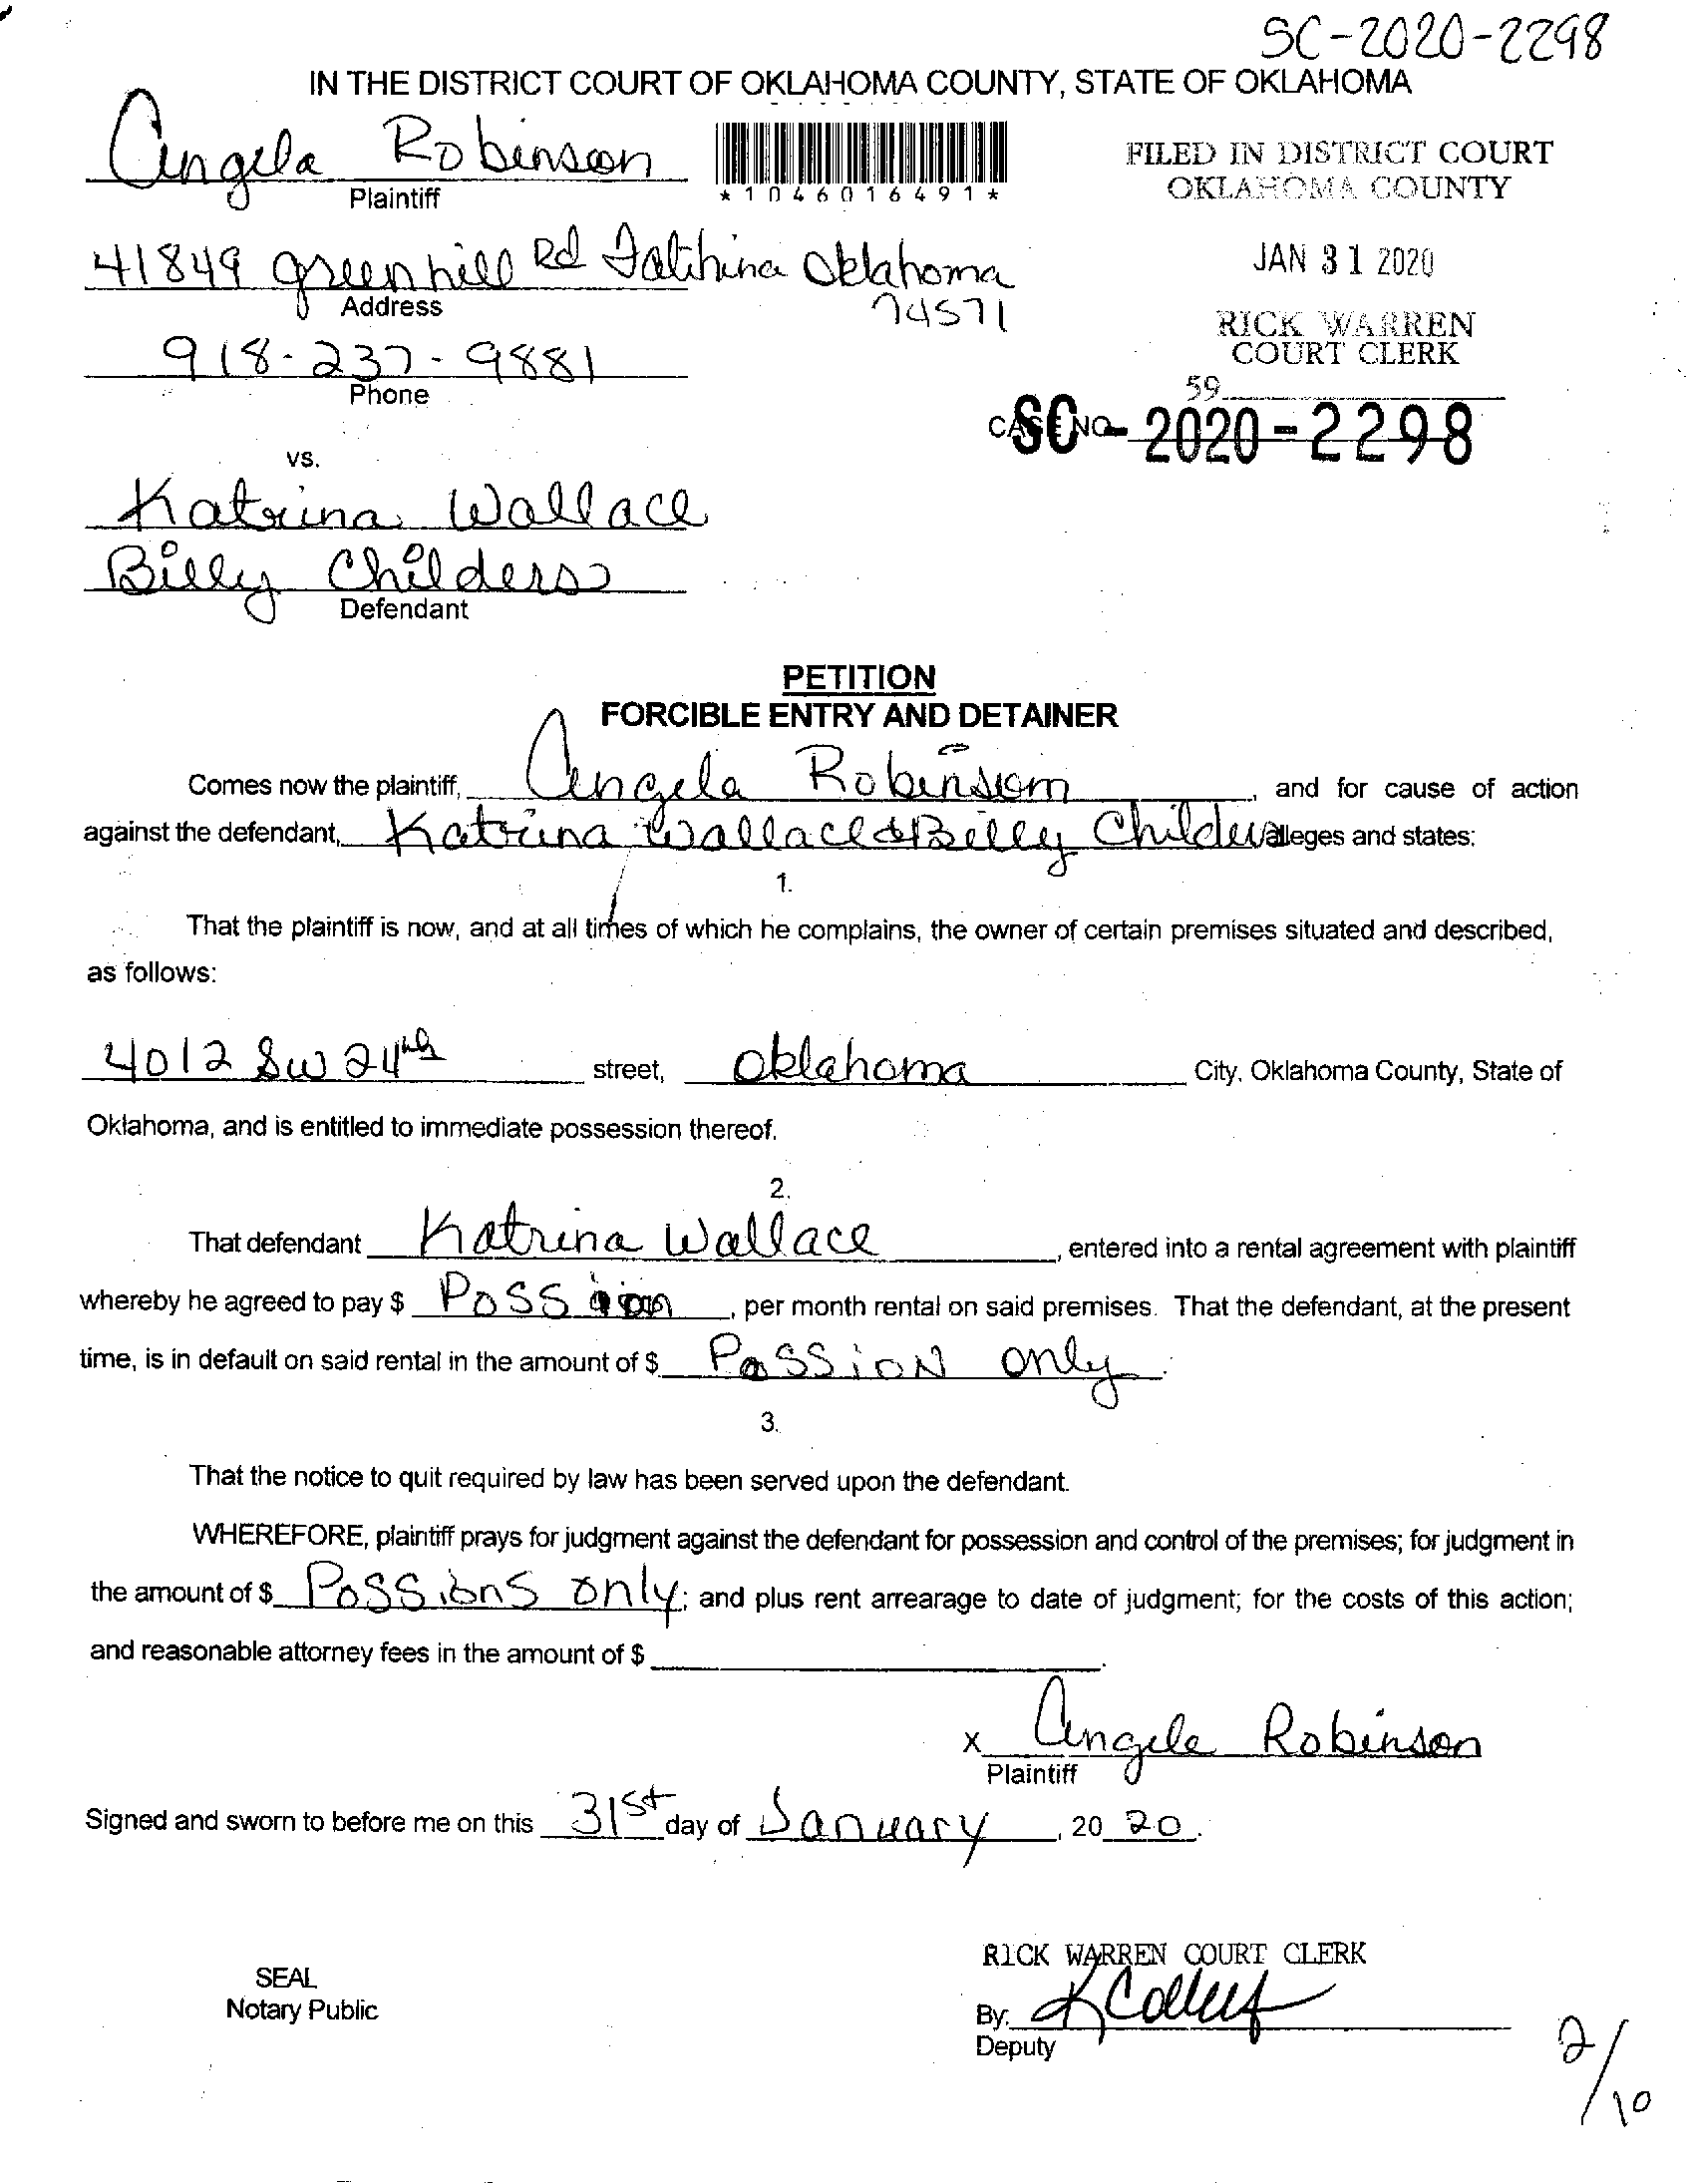 SC-2020-2298
IN THE DISTRICT COURT OF OKLAHOMA COUNTY, STATE OF OKLAHOMA
Angela Robinson
Plaintiff
*1046016491*
FILED IN DISTRICT COURT
OKLAHOMA COUNTY
JAN 31 2020
RICK WARREN
COURT CLERK
59
41849 greenhill Rd Talihina Oklahoma
74571
Address
918-237-9881
Phone
CASE NO. SC-2020-2298
vs.
Katrina Wallace
Billy Childers
Defendant
PETITION
FORCIBLE ENTRY AND DETAINER
Comes now the plaintiff, Angela Robinson, and for cause of action
against the defendant, Katrina Wallace & Billy Childers alleges and states:
1.
That the plaintiff is now, and at all times of which he complains, the owner of certain premises situated and described,
as follows:
4012 SW 24th street, Oklahoma City, Oklahoma County, State of
Oklahoma, and is entitled to immediate possession thereof.
2.
That defendant Katrina Wallace, entered into a rental agreement with plaintiff
whereby he agreed to pay $ Possion, per month rental on said premises. That the defendant, at the present
time, is in default on said rental in the amount of $ PossioN only.
3.
That the notice to quit required by law has been served upon the defendant.
WHEREFORE, plaintiff prays for judgment against the defendant for possession and control of the premises; for judgment in
the amount of $ PoSSionS only; and plus rent arrearage to date of judgment; for the costs of this action;
and reasonable attorney fees in the amount of $ .
X Angela Robinson
Plaintiff
Signed and sworn to before me on this 31st day of January, 2020.
RICK WARREN COURT CLERK
SEAL
Notary Public
By:
Deputy
2/10